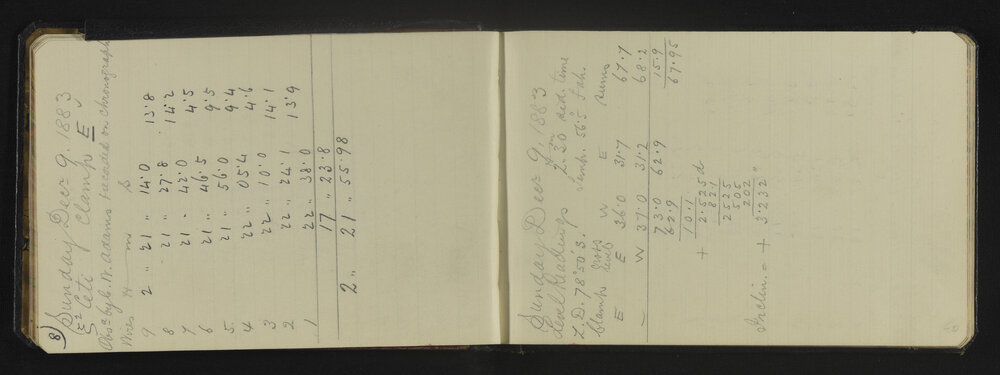 8) Sunday Decr 9. 1883
ξ² Ceti Clamp E
Obsd by C.W. Adams recorded on chronograph
Wires H m s
9 2 " 21 " 14.0 13.8
8 21 " 27.8 14.2
7 21 " 42.0 4.5
6 21 " 46.5 9.5
5 21 " 56.0 9.4
4 22 " 05.4 4.6
3 22 " 10.0 14.1
2 22 " 24.1 13.9
1 22 " 38.0
17 " 23.8
2 " 21 " 55.98
Sunday Decr 9. 1883
Level Readings 2h 30m sid. time
Z.D. 78°50'S. temp. 56.5 fah.
Clamp levels E W E sums
E 36.0 31.7 67.7
W 37.0 31.2 68.2
73.0 62.9 15.9
62.9 67.95
10.1
+ 2.525 d
.821
2525
505
202
Inclin. = + 3.232"